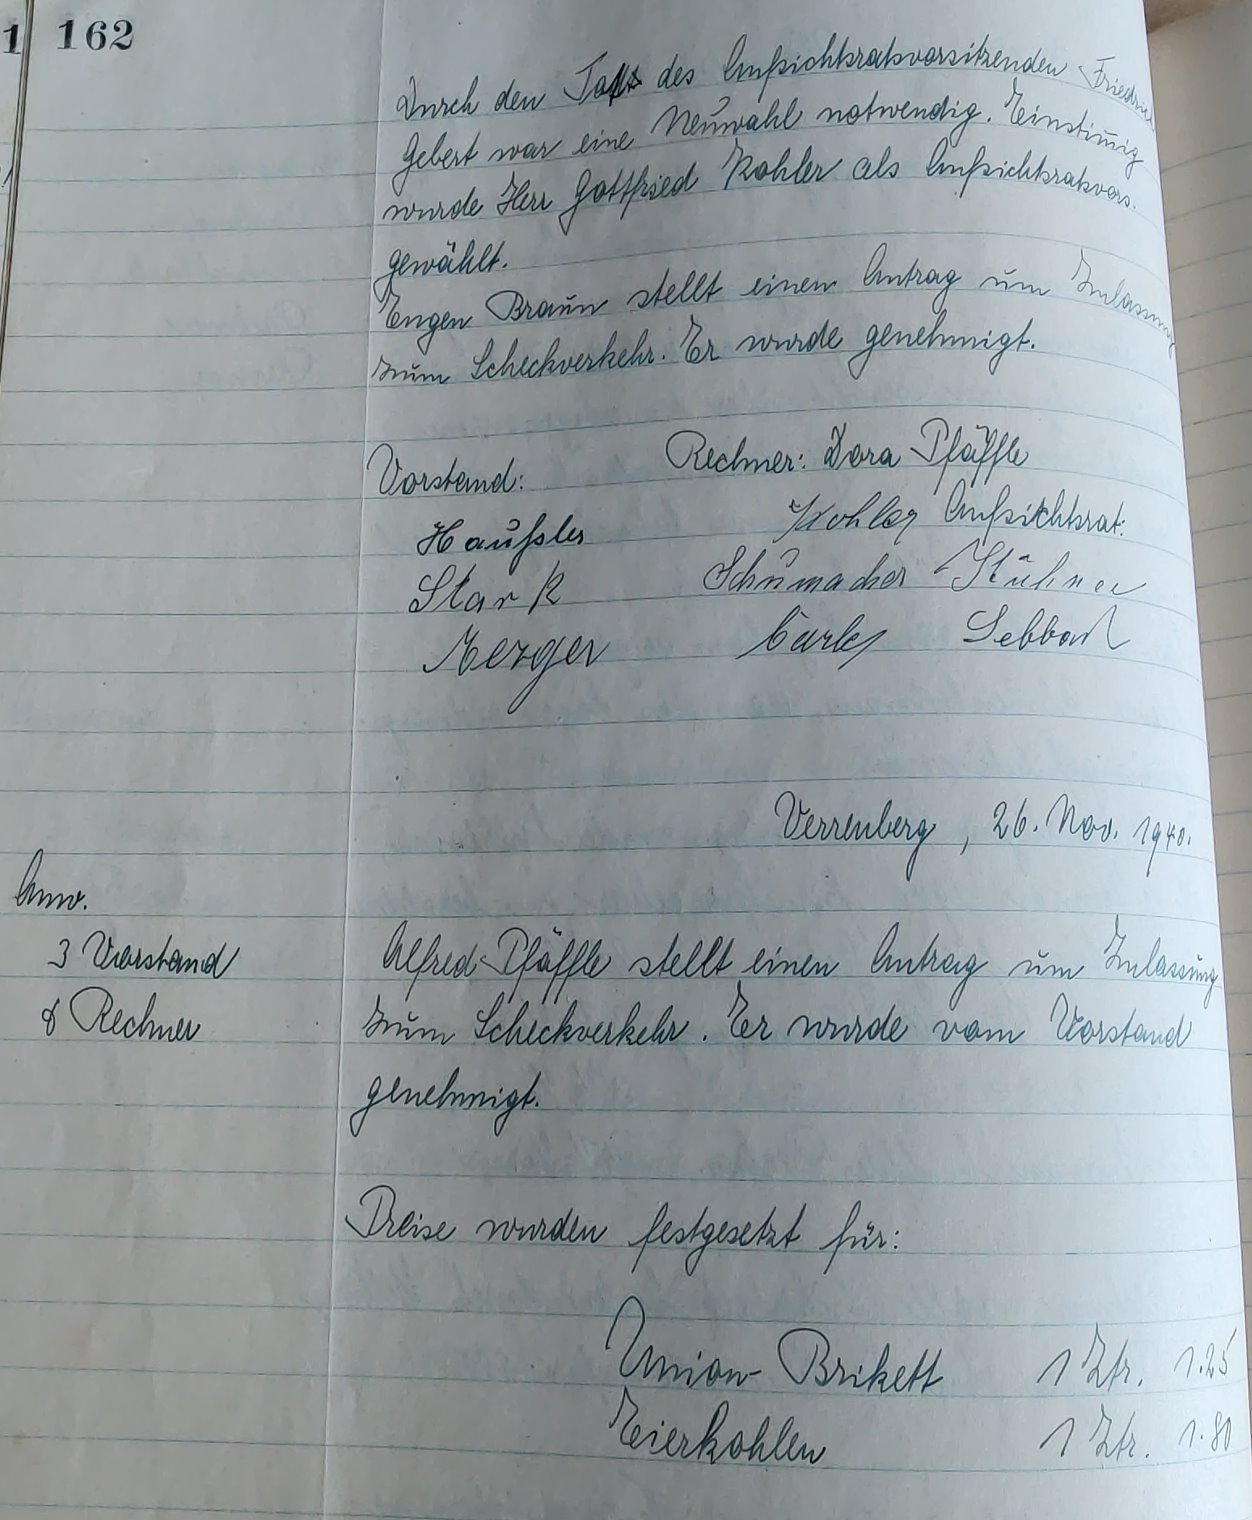 162
Durch den Tod des Aufsichtsratsvorsitzenden Friedrich
Gebert war eine Neuwahl notwendig. Einstim̄ig
wurde Herr Gottfried Kohler als Aufsichtsratsvors.
gewählt.
Eugen Braun stellt einen Antrag um Zulassung
zum Scheckverkehr. Er wurde genehmigt.
Vorstand: Rechner: Dora Pfäffle
Kohler Aufsichtsrat:
Häußler
Stark Schumacher
Mezger Carle
Verrenberg, 26. Nov. 1940.
Anw.
3 Vorstand
& Rechner
Alfred Pfäffle stellt einen Antrag um Zulassung
zum Scheckverkehr. Er wurde vom Vorstand
genehmigt.
Preise wurden festgesetzt für:
Union-Brikett 1 Ztr. 1.25
Eierkohlen 1 Ztr. 1.80